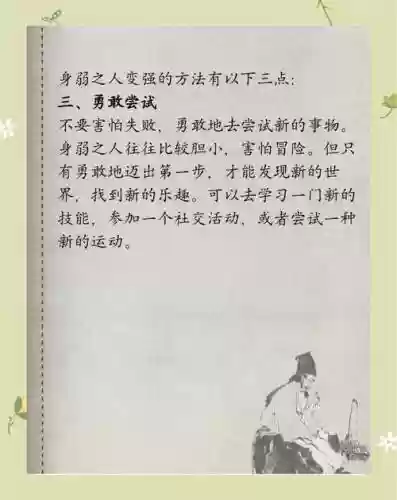 身弱之人变强的方法有以下三点：
三、勇敢尝试
不要害怕失败，勇敢地去尝试新的事物。
身弱之人往往比较胆小，害怕冒险。但只
有勇敢地迈出第一步，才能发现新的世
界，找到新的乐趣。可以去学习一门新的
技能，参加一个社交活动，或者尝试一种
新的运动。